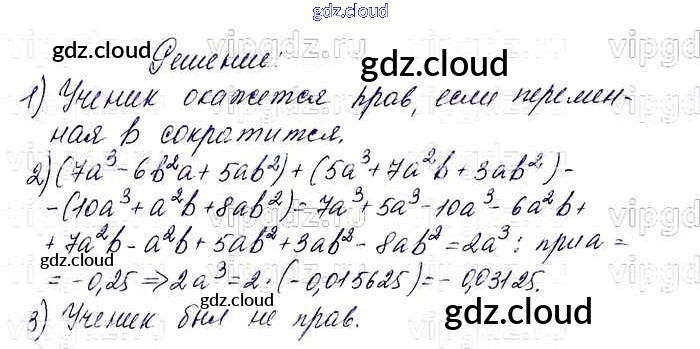 gdz.cloud
gdz.cloud
Решение:
gdz.cloud
1) Ученик окажется прав, если перемен-
ная в сократится.
2) (7a³ - 6b²a + 5ab²) + (5a³ + 7a²b + 3ab²) -
- (10a³ + a²b + 8ab²) = 7a³ + 5a³ - 10a³ - 6a²b +
+ 7a²b - a²b + 5ab² + 3ab² - 8ab² = 2a³; при a =
= -0,25 ⇒ 2a³ = 2 · (-0,015625) = -0,03125.
gdz.cloud
3) Ученик был не прав.
gdz.cloud
gdz.cloud
vipgdz.ru
vipgdz
vipgdz